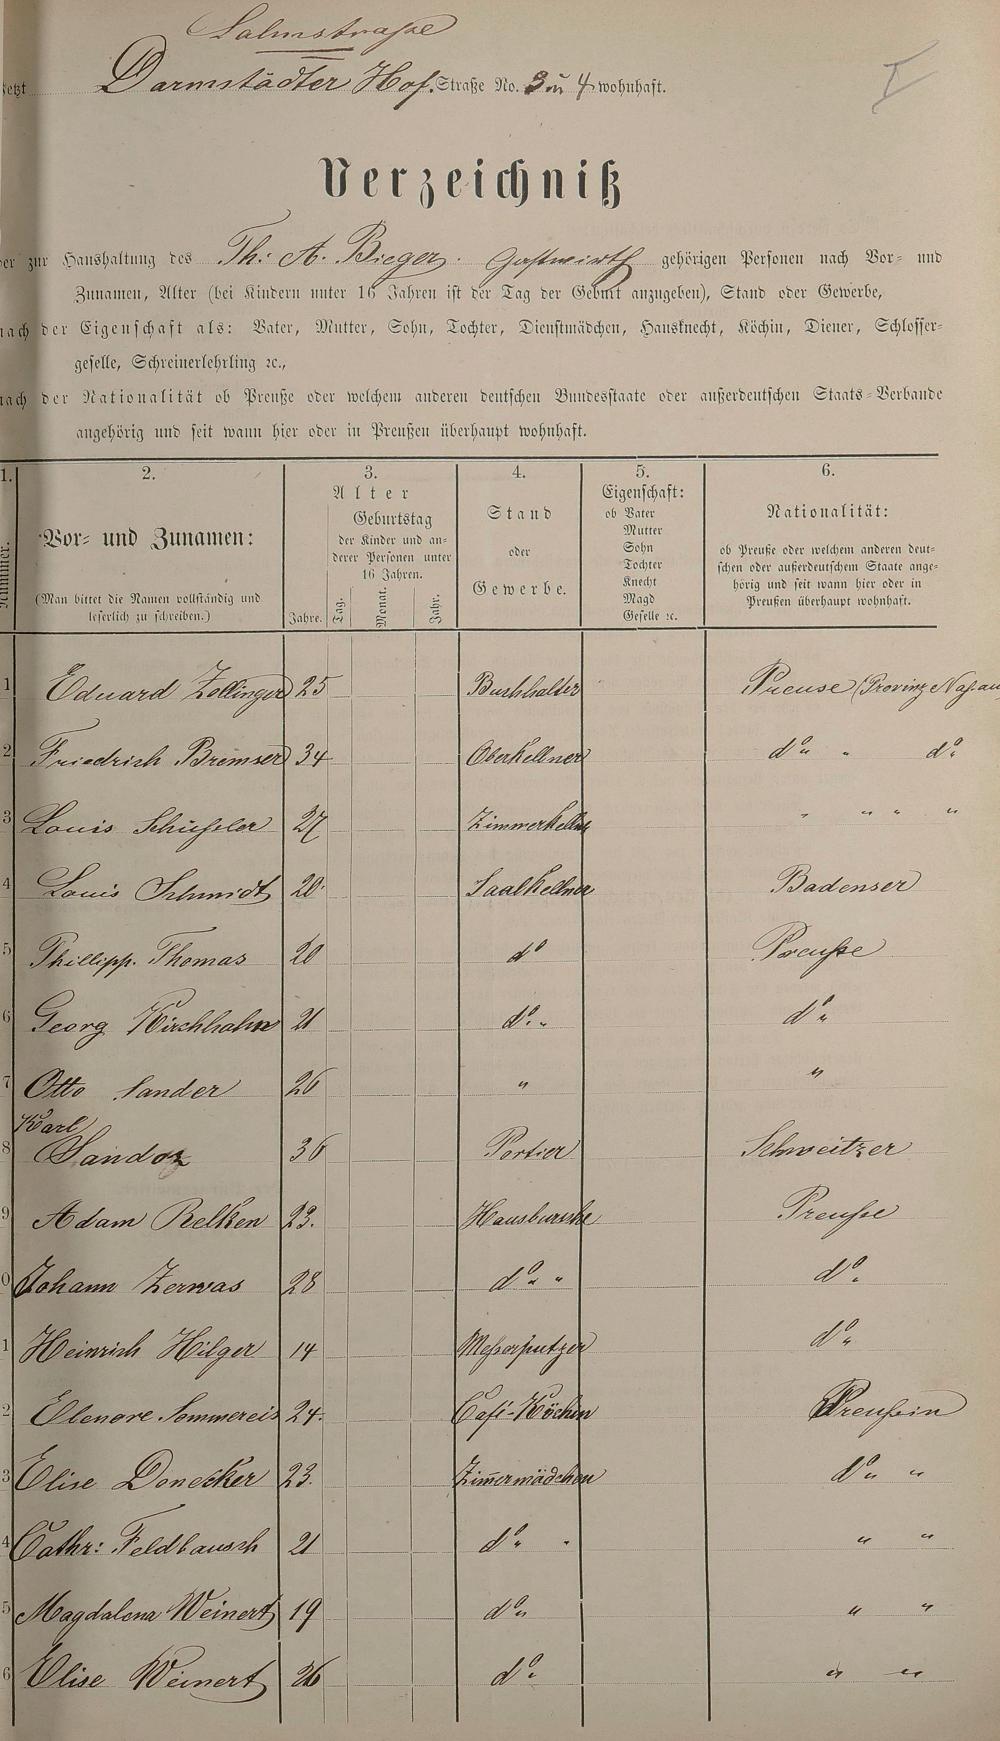 Salmstraße
jetzt Darmstädter Hof. Straße No. 3 u 4 wohnhaft.
I
Verzeichniß
der zur Haushaltung des Th: A. Bieger. Gastwirth gehörigen Personen nach Vor- und
Zunamen, Alter (bei Kindern unter 16 Jahren ist der Tag der Geburt anzugeben), Stand oder Gewerbe,
nach der Eigenschaft als: Vater, Mutter, Sohn, Tochter, Dienstmädchen, Hausknecht, Köchin, Diener, Schlosser-
geselle, Schreinerlehrling ꝛc.,
nach der Nationalität ob Preuße oder welchem anderen deutschen Bundesstaate oder außerdeutschen Staats-Verbande
angehörig und seit wann hier oder in Preußen überhaupt wohnhaft.
1. 2. 3. 4. 5. 6.
Nummer.
Vor- und Zunamen:
(Man bittet die Namen vollständig und
leserlich zu schreiben.)
Alter
Jahre.
Geburtstag
der Kinder und an-
derer Personen unter
16 Jahren.
Tag. Monat. Jahr.
Stand
oder
Gewerbe.
Eigenschaft:
ob Vater
Mutter
Sohn
Tochter
Knecht
Magd
Geselle ꝛc.
Nationalität:
ob Preuße oder welchem anderen deut-
schen oder außerdeutschem Staate ange-
hörig und seit wann hier oder in
Preußen überhaupt wohnhaft.
1 Eduard Zollinger 25 Buchhalter Preuse (Provinz Nassau
2 Friedrich Bremser 34 Oberkellner do " do
3 Louis Schüssler 27 Zimmerkellner " " " "
4 Louis Schmidt 20 Saalkellner Badenser
5 Phillipp. Thomas 20 do Preuße
6 Georg Kirchhahn 21 do " do "
7 Otto Sander 26 " "
Karl
8 Sandoz 36 Portier Schweitzer
9 Adam Relken 23. Hausbursche Preuße
0 Johann Zerwas 28 do " " do
1 Heinrich Hilger 14 Messerputzer do "
2 Elenore Sommereis 24. Café-Köchin Preußin
3 Elise Donecker 23 Zimermädchen do " "
4 Cathr: Feldbausch 21 do " " " "
5 Magdalena Weinert 19 do " " "
6 Elise Weinert 26 do " " "